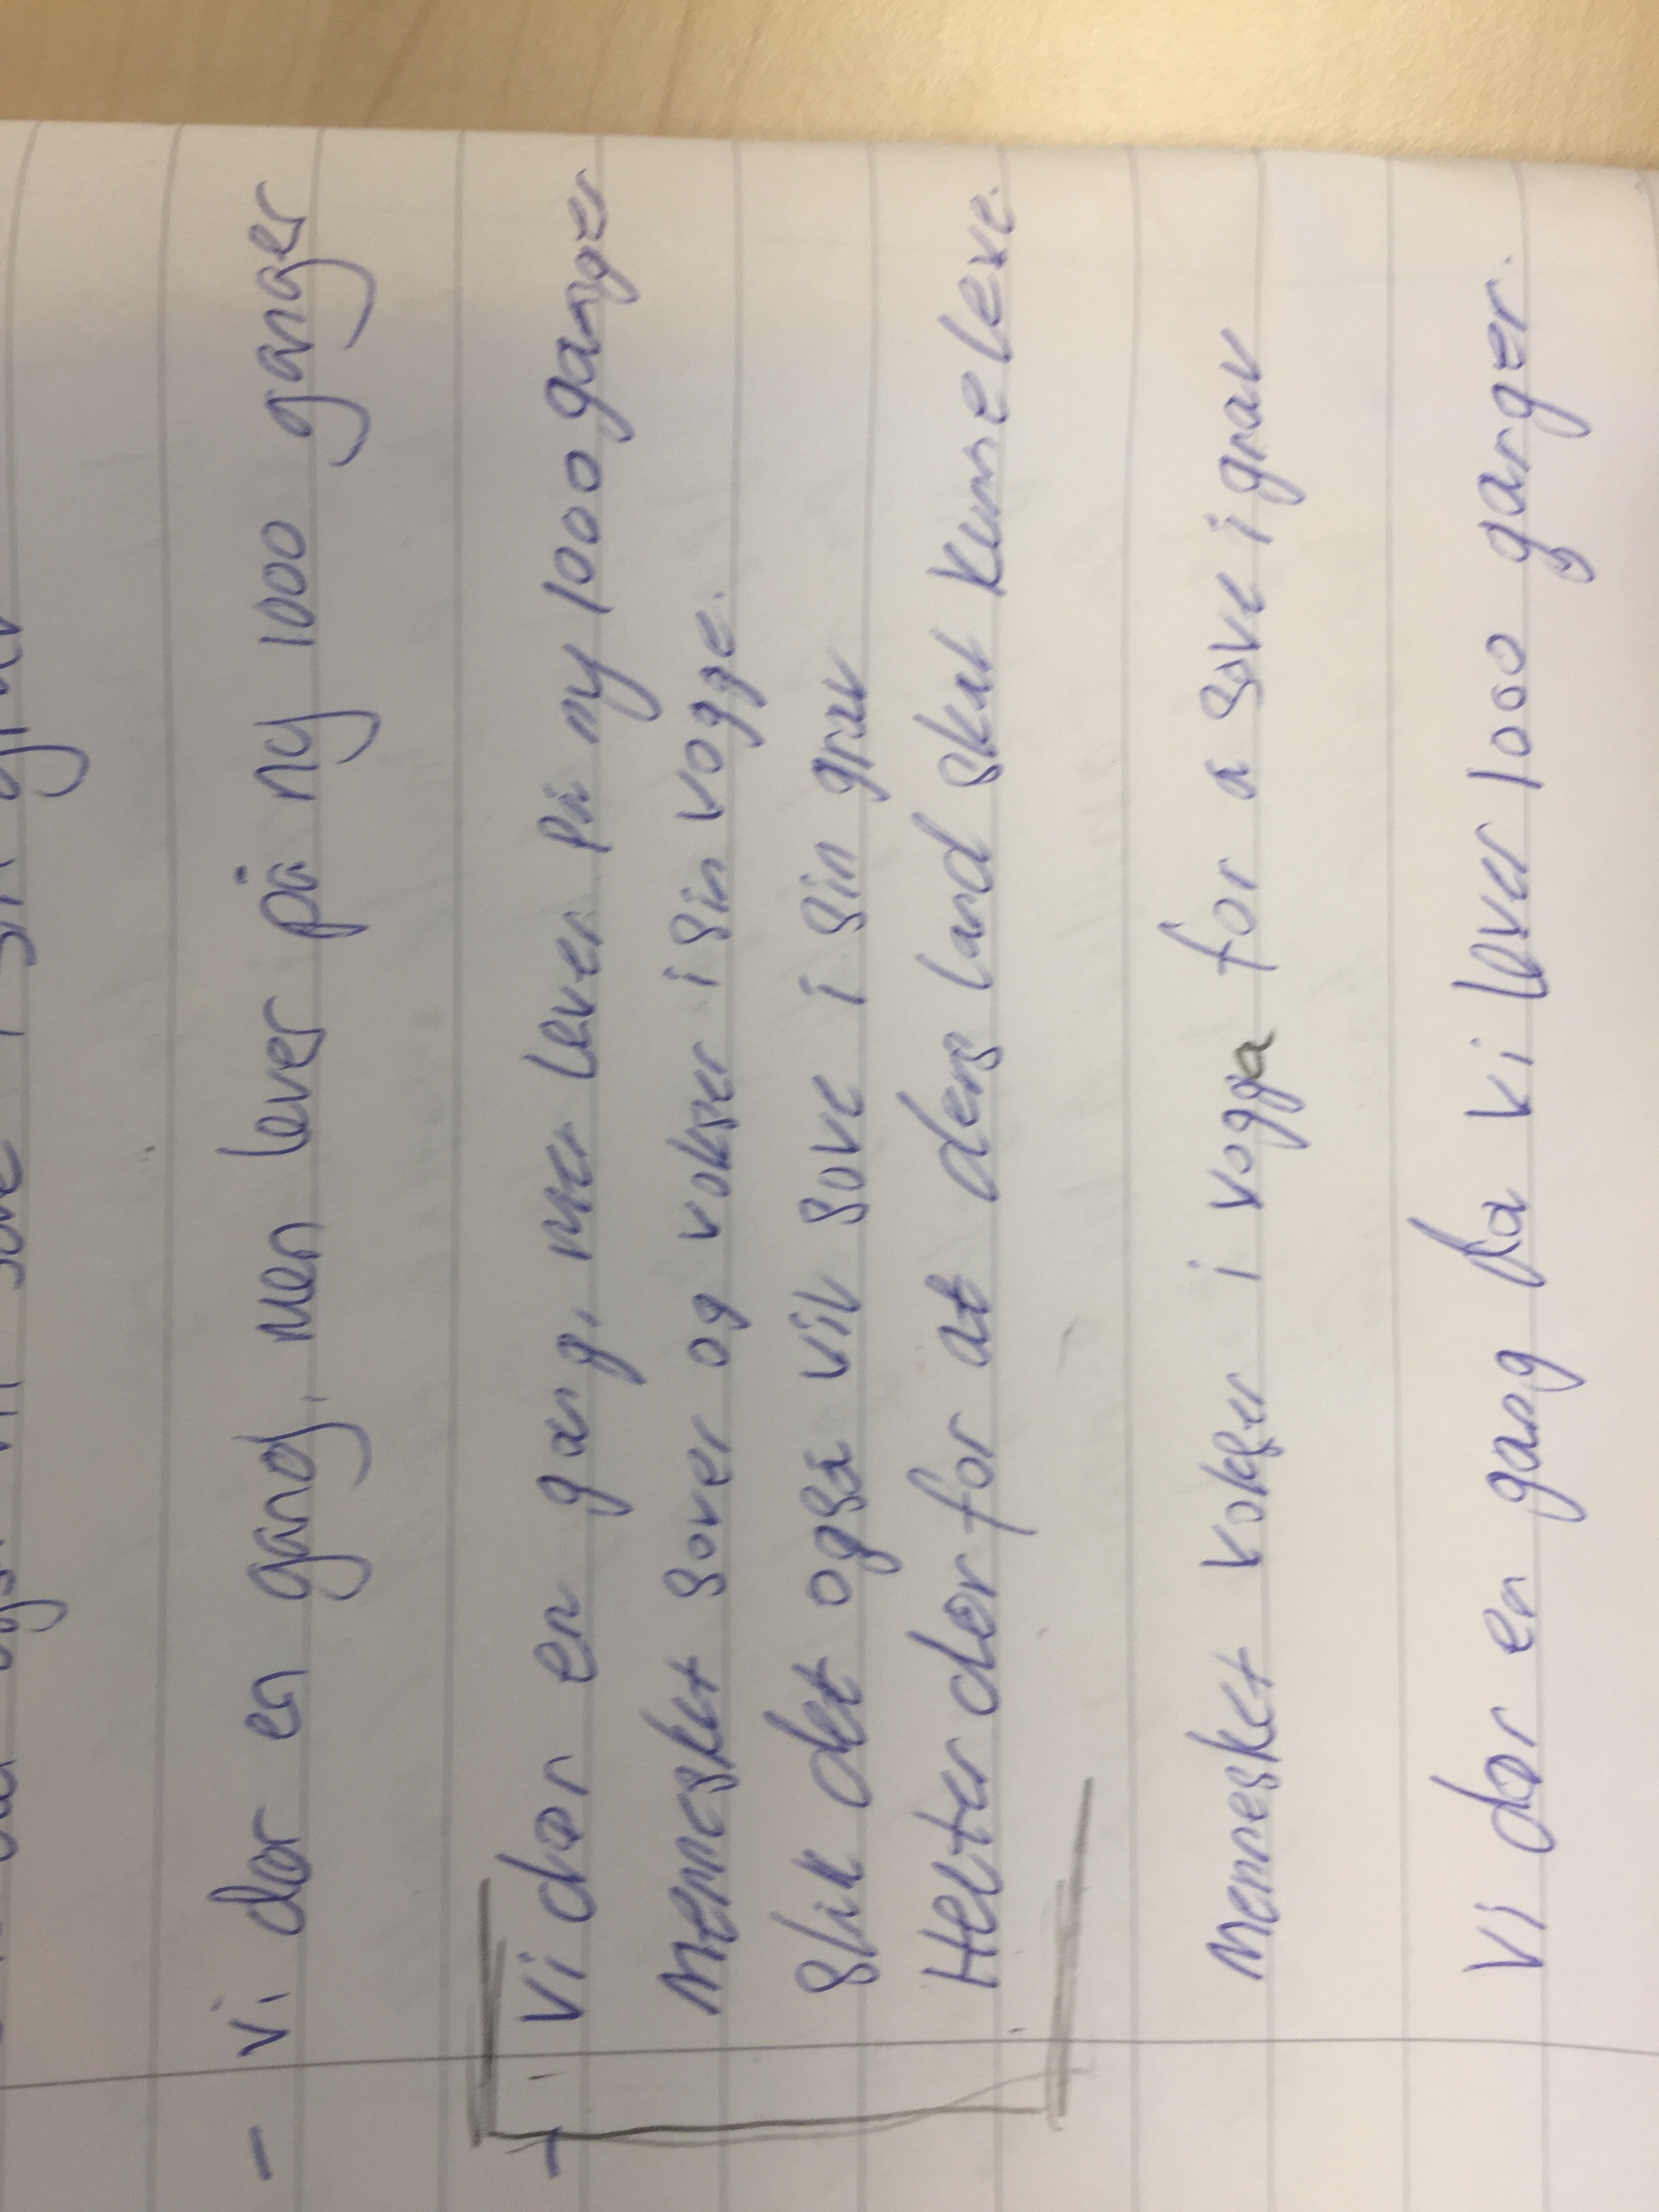 - Vi dør en gang, men lever på ny 1000 ganger
- Vi dør en gang, men lever på ny 1000 ganger
Mennesket sover og vokser i sin vogge.
Slik det også vil sove i sin grav
Helter dør for at dens land skal kunne leve.
Mennesket vokser i vogga for a sove i grav
Vi dør en gang da vi lever 1000 ganger.